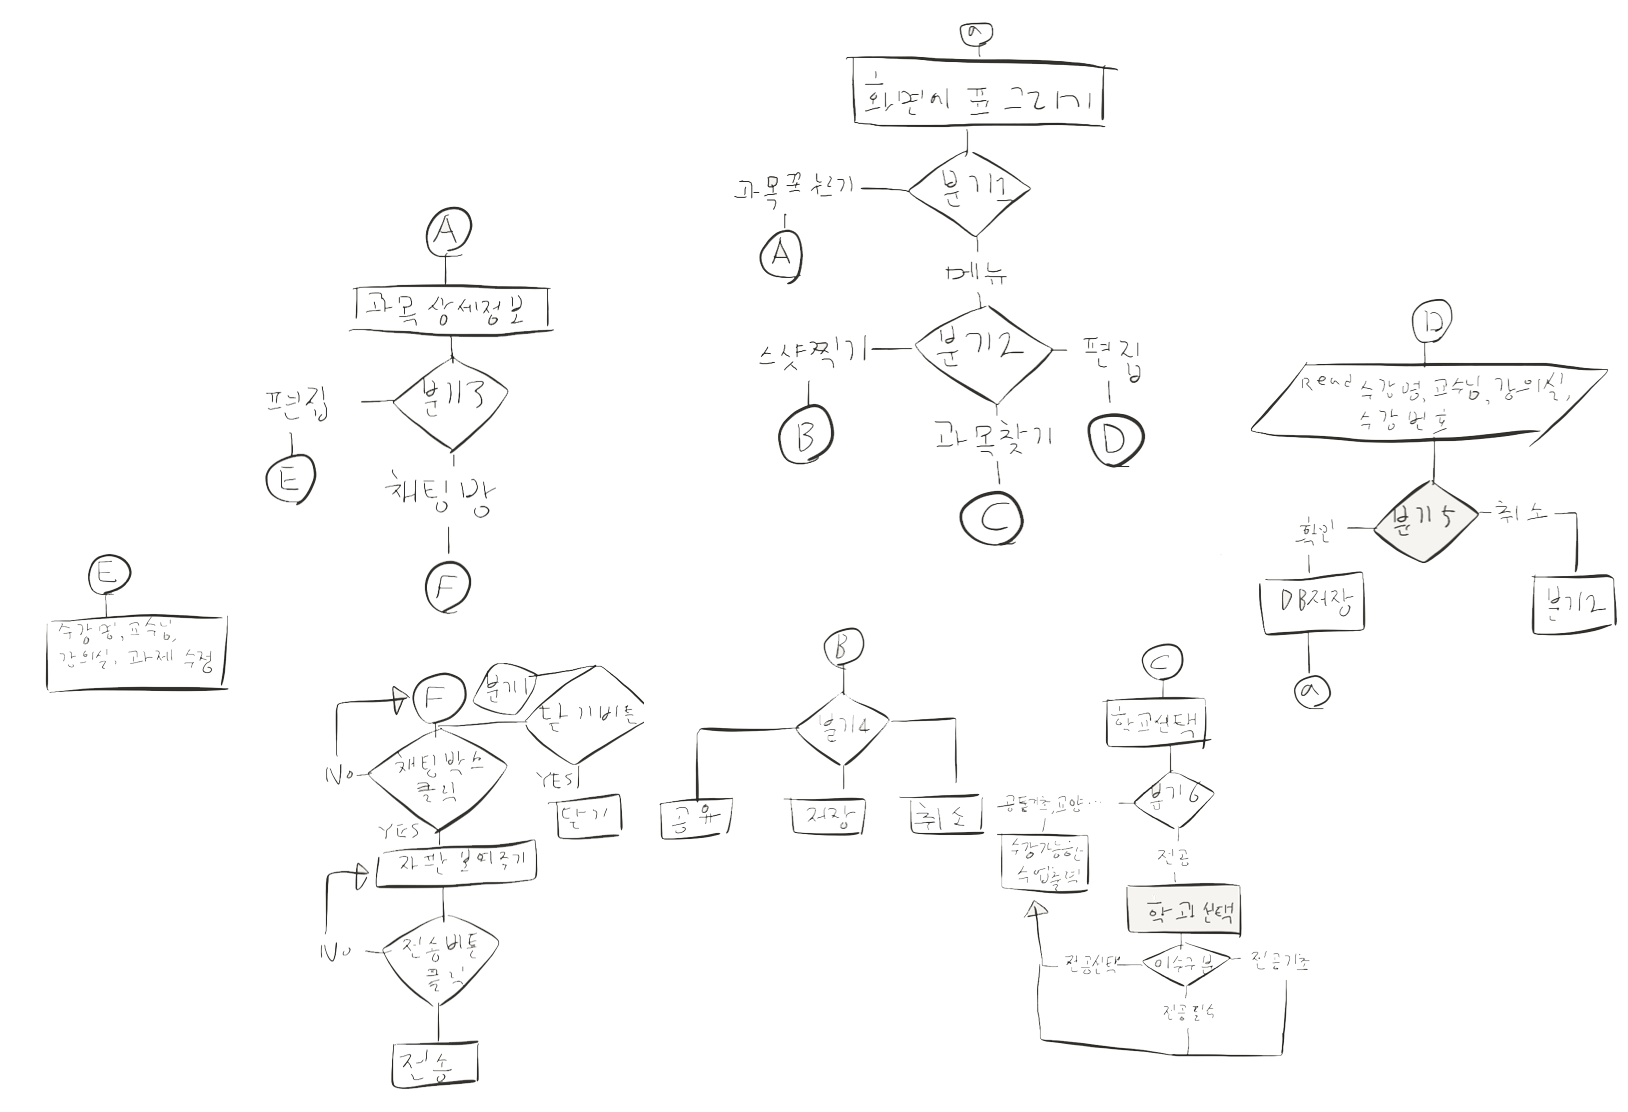 a
화면에 표 그리기
분기1
과목표 누르기
A
메뉴
분기2
스샷찍기
편집
B
D
과목찾기
C
A
과목 상세정보
분기3
편집
E
채팅방
F
D
Read 수강명, 교수님, 강의실,
수강 번호
분기5
확인
취소
DB저장
분기2
a
E
수강명, 교수님,
강의실, 과제 수정
F
분기1
닫기버튼
채팅박스
클릭
No
YES
YES
닫기
자판 보여주기
전송버튼
클릭
No
전송
B
분기4
공유
저장
취소
C
학교선택
분기6
공통기초, 교양...
수강가능한
수업출력
전공
학과선택
이수구분
전공선택
전공기초
전공필수